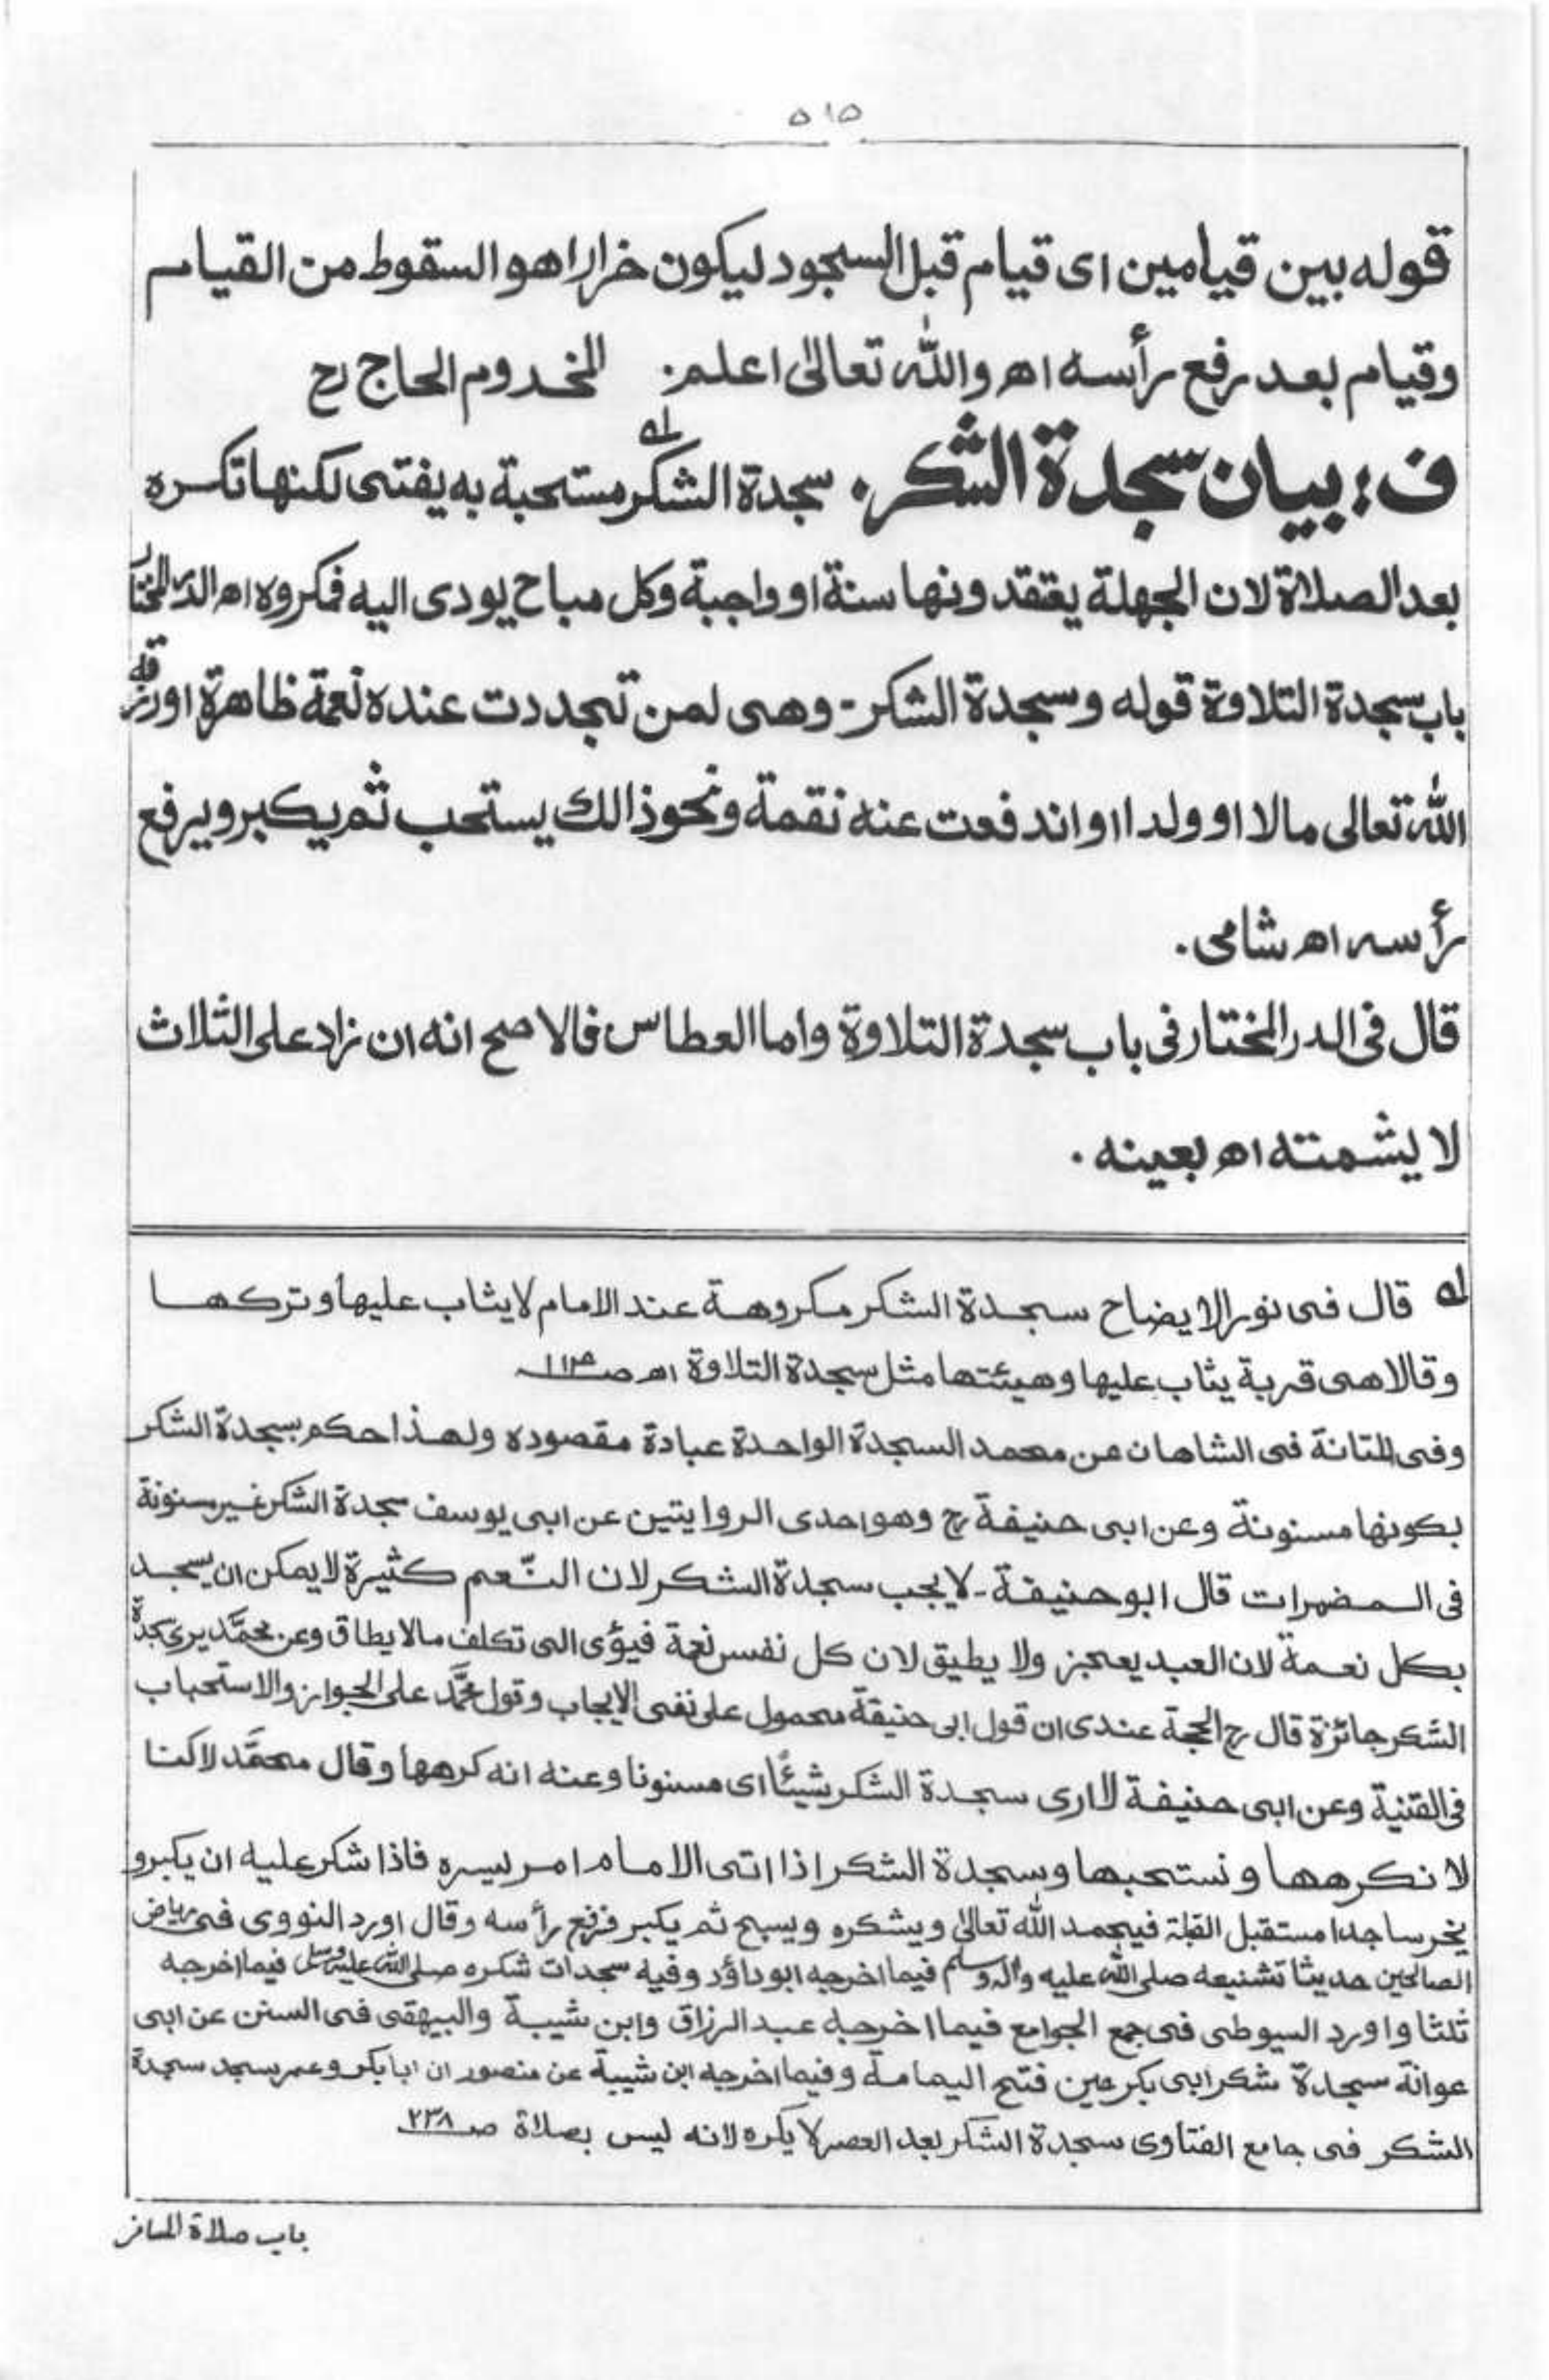 ٥١٥
قوله بين قيامين اى قيام قبل السجود ليكون خرارا هو السقوط من القيام
وقيام بعد رفع رأسه اھ والله تعالىٰ اعلم. المخدوم الحاج رح
ف: بيان سجدة الشكر. سجدة الشكر لہ مستحبة به يفتى لكنها تكره
بعد الصلاة لان الجهلة يقتقدونها سنة او واجبة وكل مباح يودى اليه فمكروه اھ الدر المختار
باب سجدة التلاوة قوله وسجدة الشكر - وهى لمن تجددت عنده نعمة ظاهرة او رزقه
الله تعالى مالا او ولدا او اندفعت عنه نقمة ونحو ذالك يستحب ثم يكبر ويرفع
رأسه اھ شامى.
قال فى الدر المختار فى باب سجدة التلاوة واما العطاس فالاصح انه ان زاد على الثلاث
لا يشمته اھ بعينه.
لہ قال فى نور الايضاح سجدة الشكر مكروهة عند الامام لا يثاب عليها وتركها
وقالا هى قربة يثاب عليها وهيئتها مثل سجدة التلاوة اھ صـ
وفى المتانة فى الشاهان عن محمد السجدة الواحدة عبادة مقصوده ولهذا حكم بسجدة الشكر
بكونها مسنونة وعن ابى حنيفة رح وهو احدى الروايتين عن ابى يوسف سجدة الشكر غير مسنونة
فى المضمرات قال ابو حنيفة - لا يجب سجدة الشكر لان النّعم كثيرة لا يمكن ان يسجد
بكل نعمة لان العبد يعجز ولا يطيق لان كل نفس نعمة فيؤى الى تكلف مالا يطاق وعن محمَّد يرى سجدة
الشكر جائزة قال رح الحجة عندى ان قول ابى حنيقة محمول على نفى الايجاب وقول محمَّد على الجواز والاستحباب
فى القنية وعن ابى حنيفة لا ارى سجدة الشكر شيئًا اى مسنونا وعنه انه كرهها وقال محمَّد لاكنا
لا نكرهها ونستحبها وسجدة الشكر اذا اتى الامام امر ليسره فاذا شكر عليه ان يكبر و
يخر ساجدا مستقبل القبلة فيحمد الله تعالىٰ ويشكره ويسبح ثم يكبر فرفع رأسه وقال اورد النووى فى رياض
الصالحين حديثا تشنيعه صلى الله عليه واله وسلم فيما اخرجه ابو داؤد وفيه سجدات شكره صلى الله عليه وسلم فيما اخرجه
ثلثا واورد السيوطى فى جمع الجوامع فيما اخرجه عبد الرزاق وابن شيبة والبيهقى فى السنن عن ابى
عوانة سجدة شكر ابى بكر حين فتح اليمامة وفيما اخرجه ابن شيبة عن منصور ان ابا بكر وعمر سجد سجدة
الشكر فى جامع الفتاوى سجدة الشكر بعد العصر لا يكره لانه ليس بصلاة صـ ٢٣٨
باب صلاة المسافر